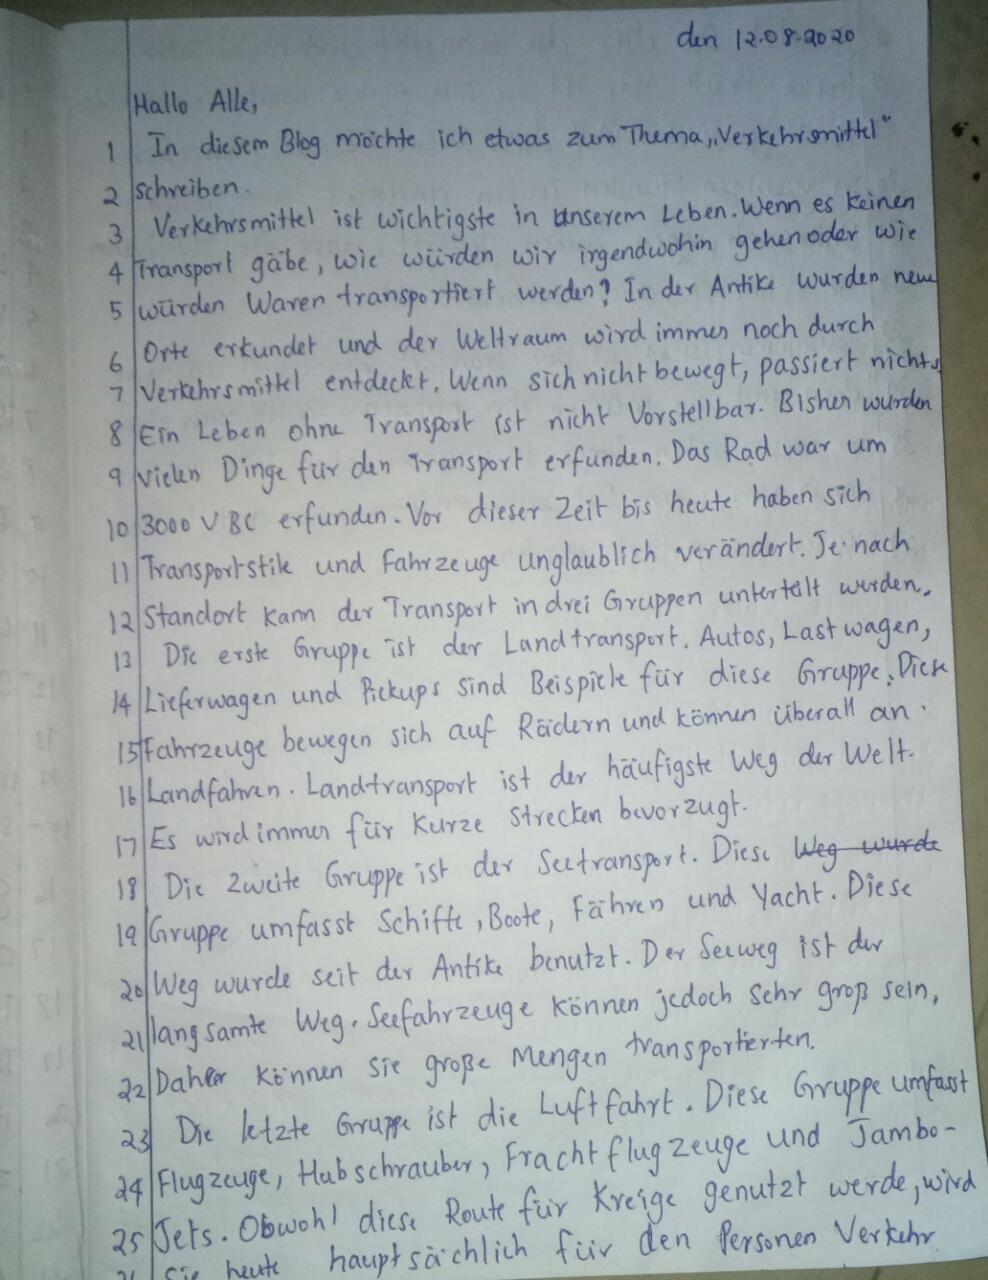 den 12.08.2020
Hallo Alle,
1 In diesem Blog möchte ich etwas zum Thema „Verkehrsmittel"
2 schreiben.
3 Verkehrsmittel ist wichtigste in unserem Leben. Wenn es keinen
4 Transport gäbe, wie würden wir irgendwohin gehen oder wie
5 würden Waren transportiert werden? In der Antike wurden neue
6 Orte erkundet und der Weltraum wird immer noch durch
7 Verkehrsmittel entdeckt. Wenn sich nicht bewegt, passiert nichts
8 Ein Leben ohne Transport ist nicht Vorstellbar. Bisher wurden
9 vielen Dinge für den Transport erfunden. Das Rad war um
10 3000 V BC erfunden. Vor dieser Zeit bis heute haben sich
11 Transportstile und Fahrzeuge unglaublich verändert. Je nach
12 Standort kann der Transport in drei Gruppen unterteilt werden.
13 Die erste Gruppe ist der Landtransport. Autos, Lastwagen,
14 Lieferwagen und Pickups sind Beispiele für diese Gruppe. Diese
15 Fahrzeuge bewegen sich auf Rädern und können überall an
16 Landfahren. Landtransport ist der häufigste Weg der Welt.
17 Es wird immer für kurze strecken bevorzugt.
18 Die zweite Gruppe ist der Seetransport. Diese Weg wurde
19 Gruppe umfasst Schiffe, Boote, Fähren und Yacht. Diese
20 Weg wurde seit der Antike benutzt. Der Seeweg ist der
21 langsamte Weg. Seefahrzeuge können jedoch sehr groß sein,
22 Daher können sie große Mengen transportierten.
23 Die letzte Gruppe ist die Luftfahrt. Diese Gruppe umfasst
24 Flugzeuge, Hubschrauber, Frachtflugzeuge und Jambo-
25 Jets. Obwohl diese Route für Kreige genutzt werde, wird
sie heute hauptsächlich für den Personen Verkehr